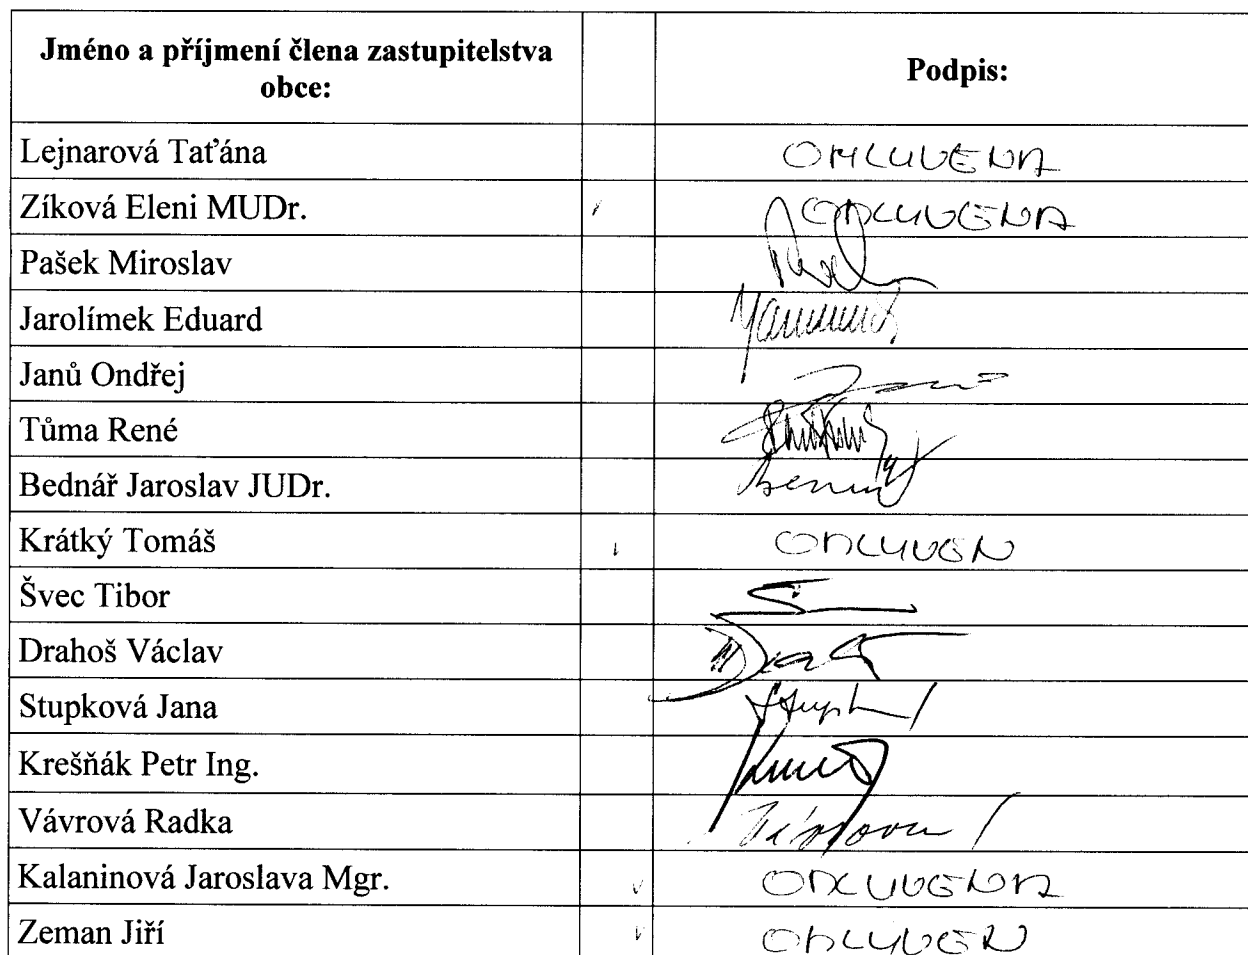 Jméno a příjmení člena zastupitelstva
obce:
Podpis:
Lejnarová Taťána OMLUVENA
Zíková Eleni MUDr. OMLUVENA
Pašek Miroslav
Jarolímek Eduard
Janů Ondřej
Tůma René
Bednář Jaroslav JUDr.
Krátký Tomáš OMLUVEN
Švec Tibor
Drahoš Václav
Stupková Jana
Krešňák Petr Ing.
Vávrová Radka
Kalaninová Jaroslava Mgr. OMLUVENA
Zeman Jiří OMLUVEN